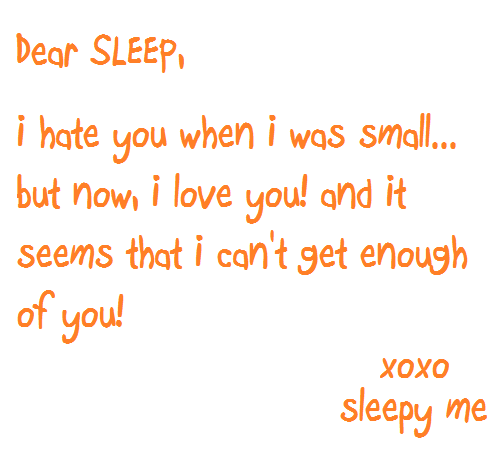 Dear SLEEP,
i hate you when i was small...
but now, i love you! and it
seems that i can't get enough
of you!
xoxo
sleepy me